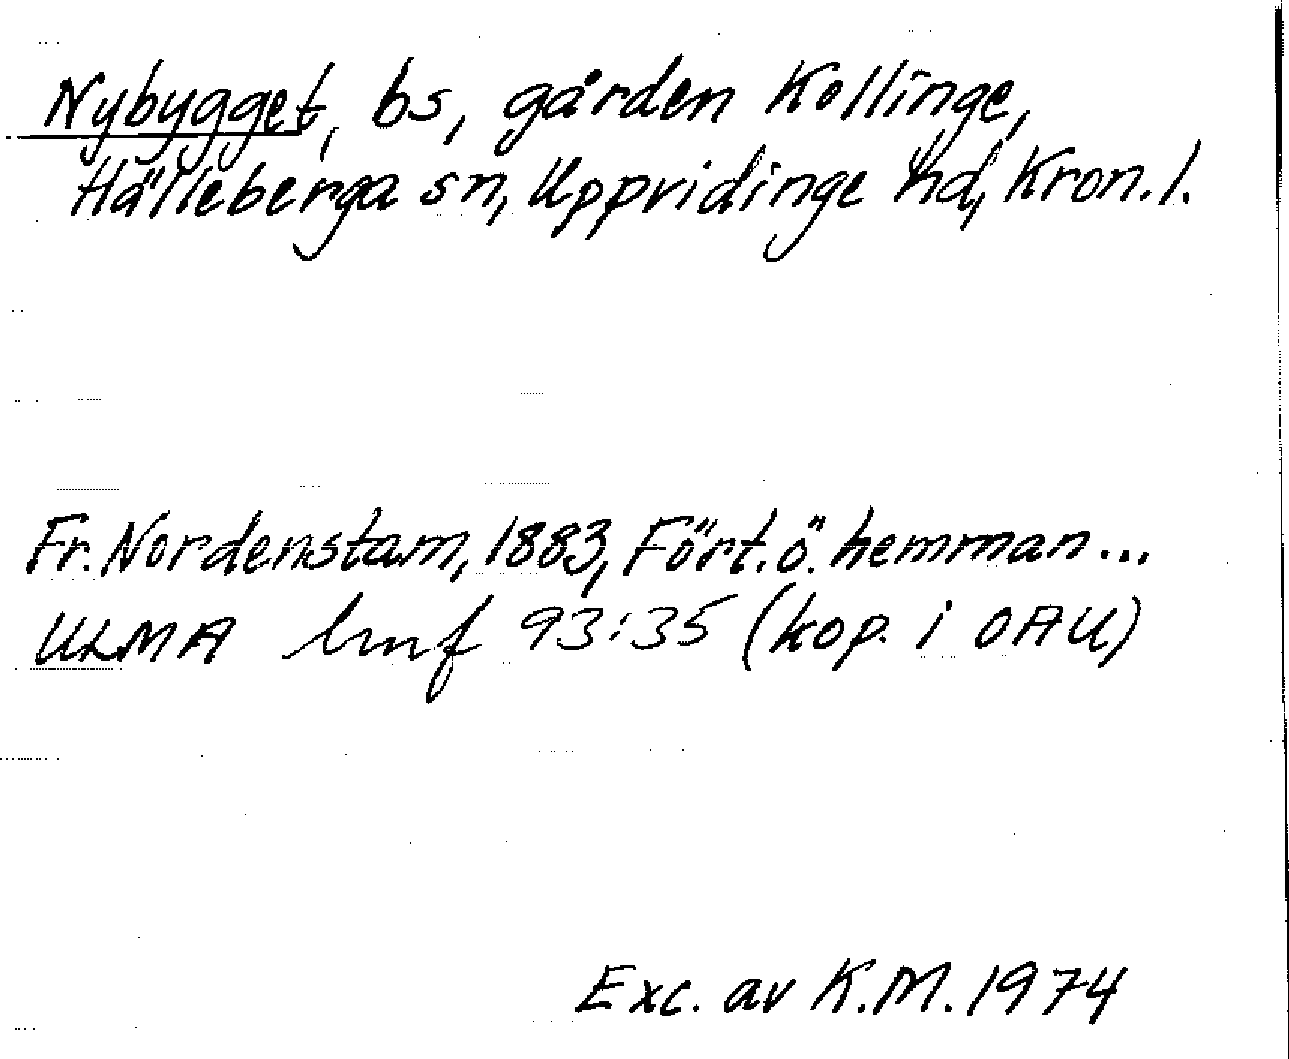 Nybygget, bs, gården Kollinge,
Hälleberga sn, Uppvidinge hd, Kron. l.
Fr. Nordenstam, 1883, Fört. ö. hemman...
ULMA lmf 93:35 (kop. i OAU)
Exc. av K.M. 1974